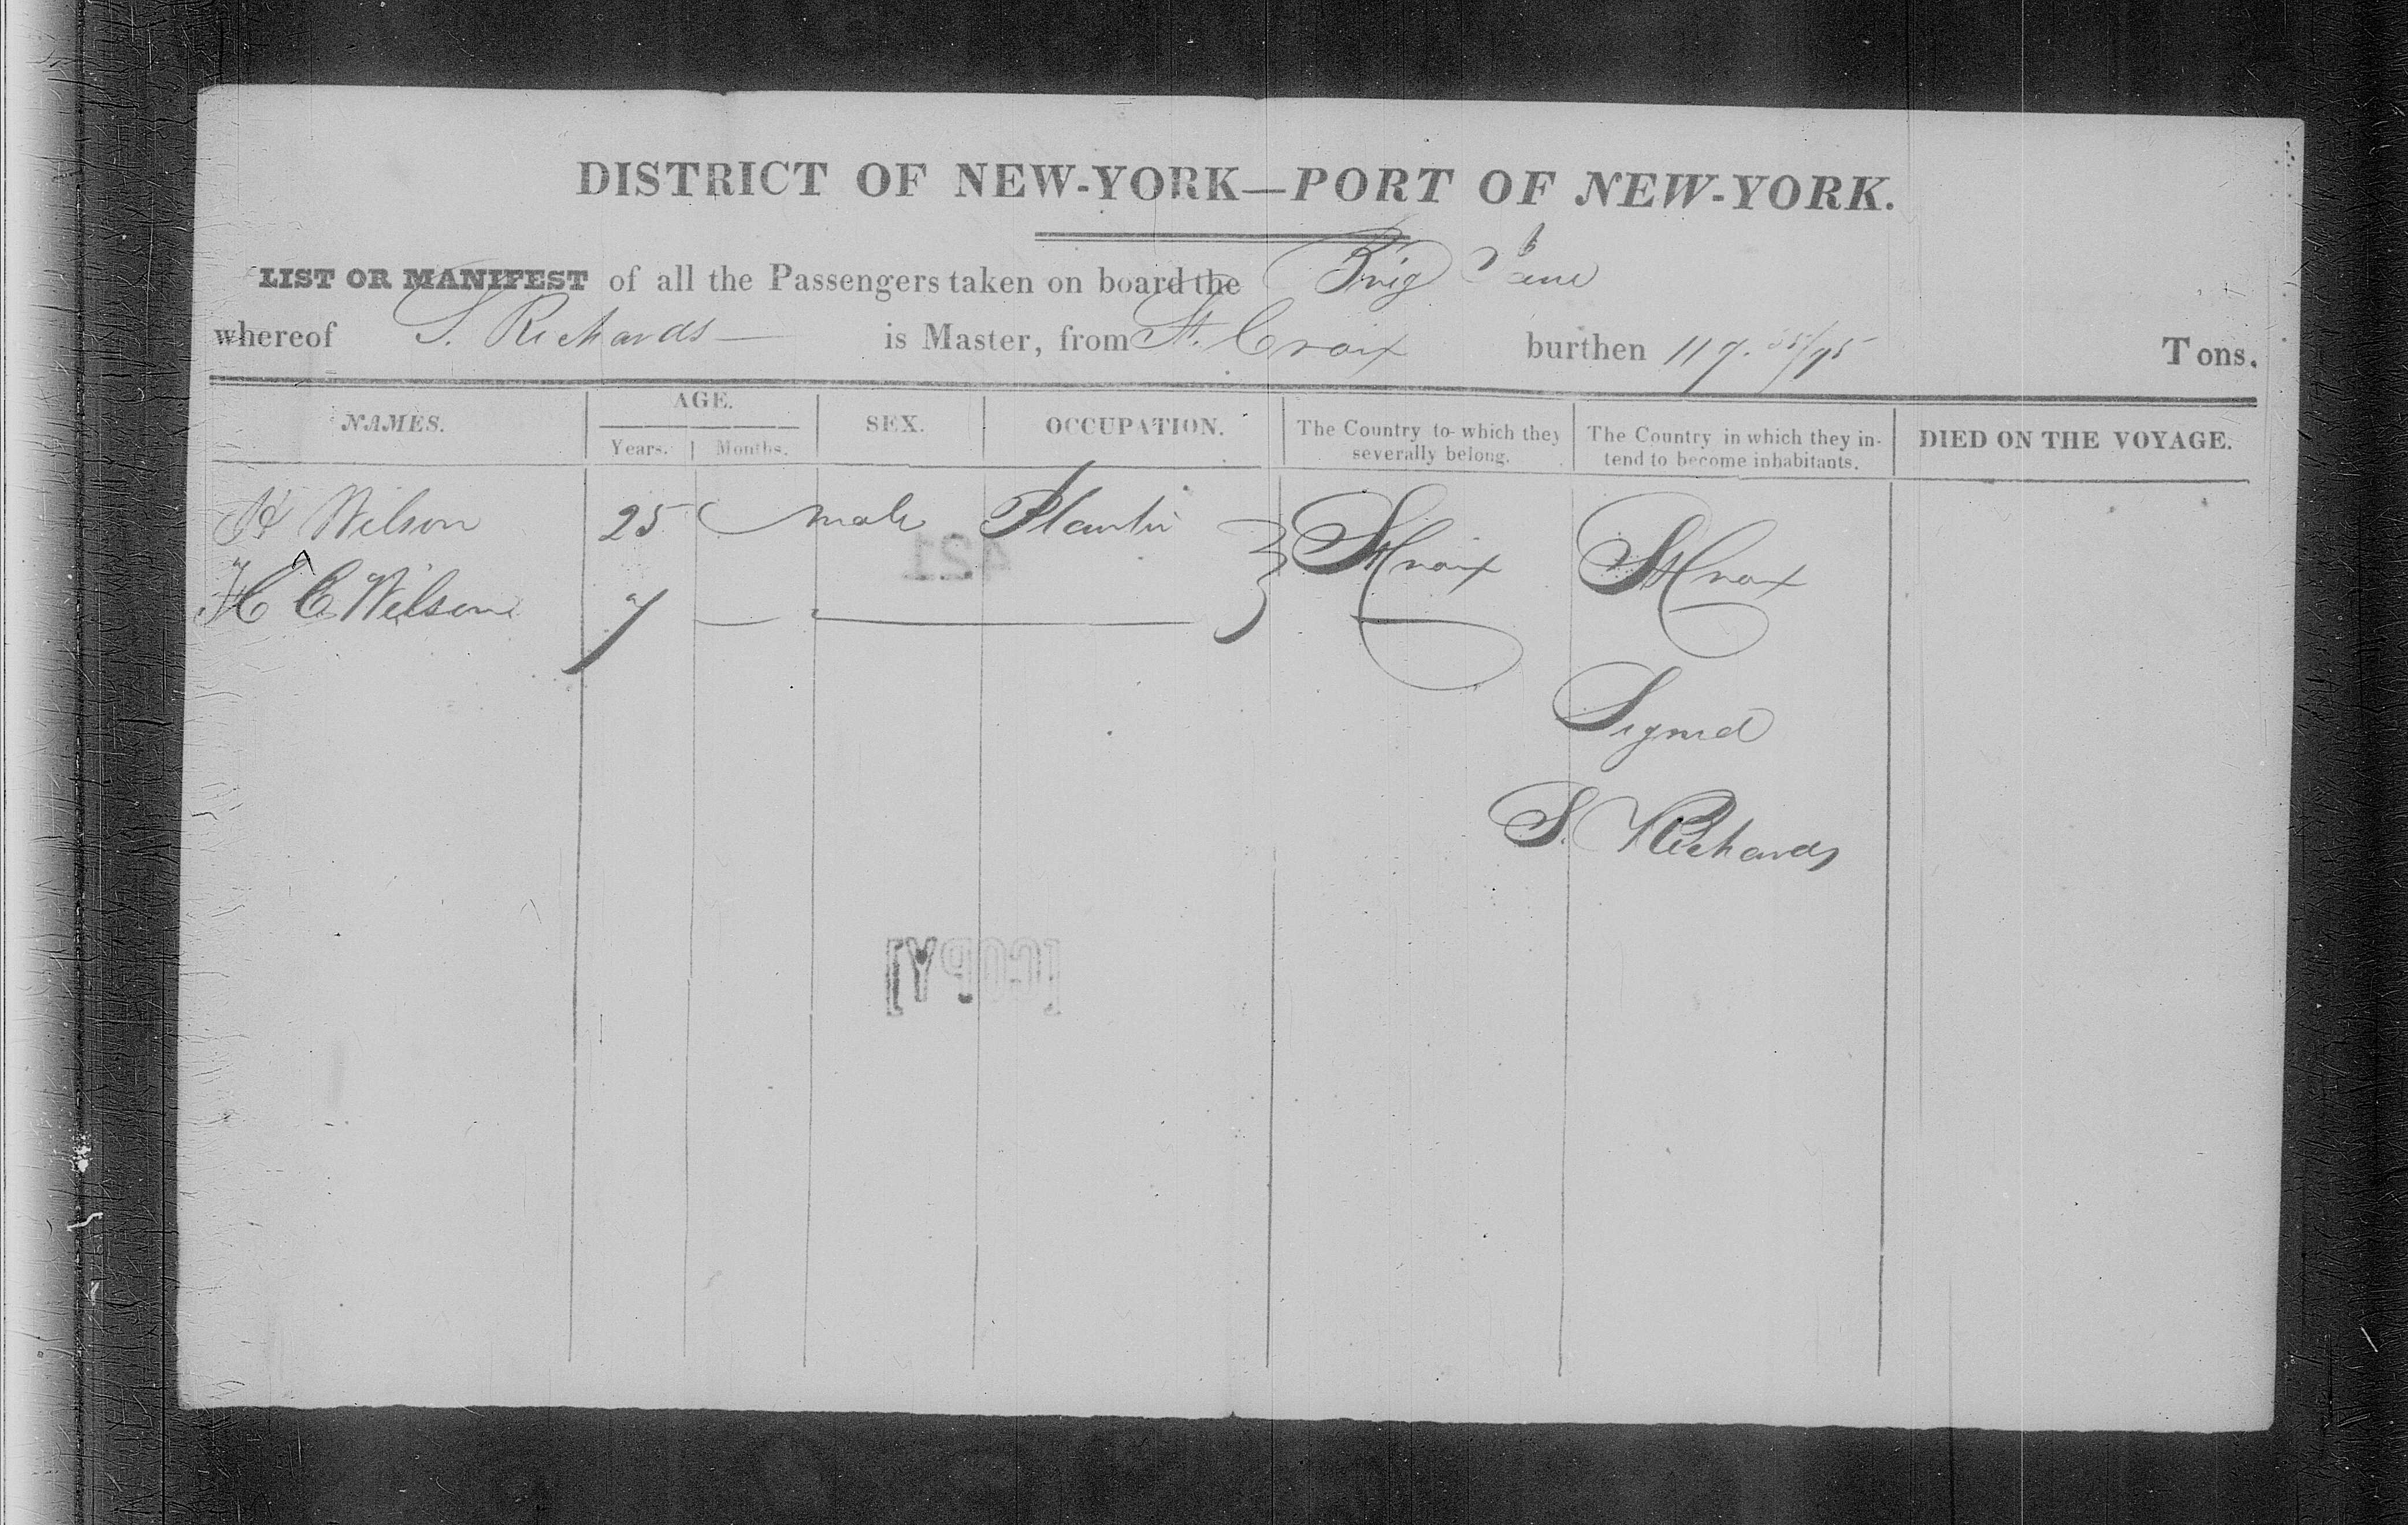 DISTRICT OF NEW-YORK—PORT OF NEW-YORK.
LIST OR MANIFEST of all the Passengers taken on board the Brig
whereof S. Richards — is Master, from St. Croix burthen 117. /95 Tons.
NAMES. AGE. SEX. OCCUPATION. The Country to which they severally belong. The Country in which they intend to become inhabitants. DIED ON THE VOYAGE.
Years. Months.
H Wilson 25 male Planter St Croix St Croix
H C Wilson 7
421
Signed
S. Richards
[COPY]